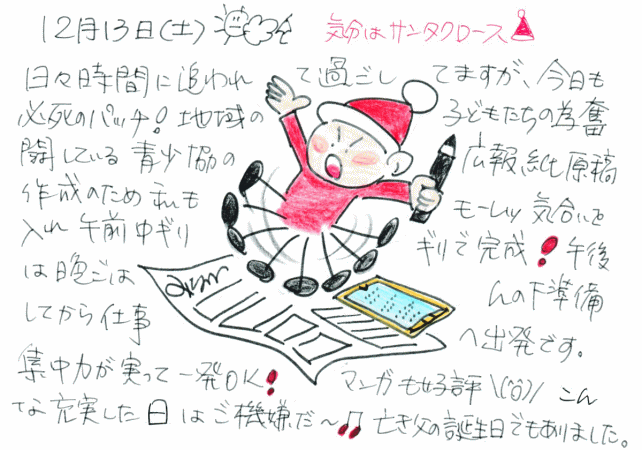 12月13日(土) 気分はサンタクロース
日々時間に追われ て過ごし てますが、今日も
必死のパッチ! 地域の 子どもたちの為奮
闘している 青少協の 広報紙原稿
作成のため 私も モーレツ気合いで
入れ 午前中ギリ ギリで完成! 午後
は晩ごは んの下準備
してから仕事 へ出発です。
集中力が実って一発OK! マンガも好評\(^o^)/ こん
な充実した日はご機嫌だ～♫ 亡き父の誕生日でもありました。
みnm